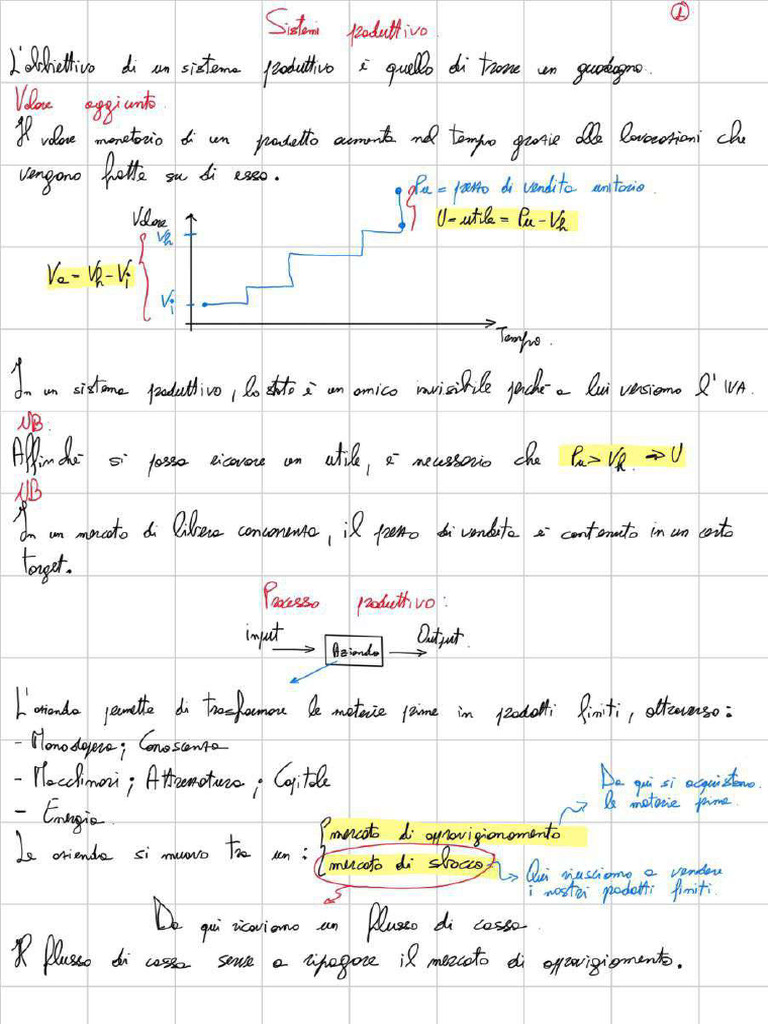 1
Sistemi produttivo
L'obbiettivo di un sistema produttivo è quello di trarre un guadagno.
Valore aggiunto
Il valore monetario di un prodotto aumenta nel tempo grazie alle lavorazioni che
vengono fatte su di esso.
Pu = prezzo di vendita unitario
Valore
U = utile = Pu - Vf
Vf
Va = Vf - Vi
Vi
Tempo.
In un sistema produttivo, lo stato è un amico invisibile perché a lui versiamo l'IVA.
NB:
Affinché si possa ricavare un utile, è necessario che Pu > Vf => U
NB
In un mercato di libera concorrenza, il prezzo di vendita è contenuto in un certo
target.
Processo produttivo:
input
Azienda
Output
L'azienda permette di trasformare le materie prime in prodotti finiti, attraverso:
- Manodopera; Conoscenza
- Macchinari; Attrezzatura; Capitale
- Energia
Da qui si acquistano
le materie prime.
Le azienda si muovo tra un:
mercato di approvigionamento
mercato di sbocco
Qui riusciamo a vendere
i nostri prodotti finiti.
Da qui ricaviamo un flusso di cassa.
Il flusso di cassa serve a ripagare il mercato di approvigiomento.